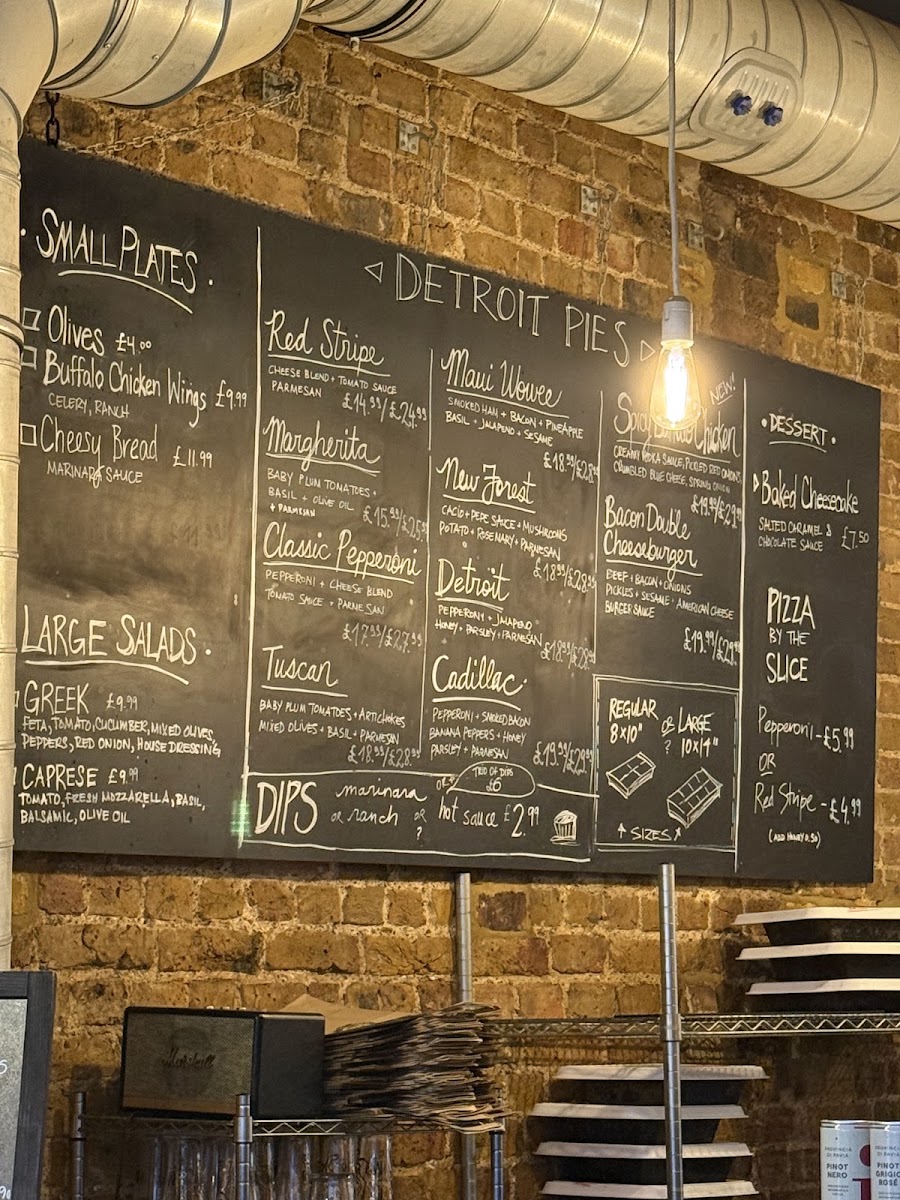 SMALL PLATES
Olives £4.00
Buffalo Chicken Wings £9.99
CELERY, RANCH
Cheesy Bread £11.99
MARINARA SAUCE
LARGE SALADS
GREEK £9.99
FETA, TOMATO, CUCUMBER, MIXED OLIVES,
PEPPERS, RED ONION, HOUSE DRESSING
CAPRESE £9.99
TOMATO, FRESH MOZZARELLA, BASIL,
BALSAMIC, OLIVE OIL
DETROIT PIES
Red Stripe
CHEESE BLEND + TOMATO SAUCE
PARMESAN
£14.99/£24.99
Margherita
BABY PLUM TOMATOES +
BASIL + OLIVE OIL
+ PARMESAN
£15.99/£25.99
Classic Pepperoni
PEPPERONI + CHEESE BLEND
TOMATO SAUCE + PARMESAN
£17.99/£27.99
Tuscan
BABY PLUM TOMATOES + ARTICHOKES
MIXED OLIVES + BASIL + PARMESAN
£18.99/£28.99
Maui Wowee
SMOKED HAM + BACON + PINEAPPLE
BASIL + JALAPENO + SESAME
£18.99/£28.99
New Forest
CACIO + PEPE SAUCE + MUSHROOMS
POTATO + ROSEMARY + PARMESAN
£18.99/£28.99
Detroit
PEPPERONI + JALAPENO
HONEY + PARSLEY + PARMESAN
£18.99/£28.99
Cadillac
PEPPERONI + SMOKED BACON
BANANA PEPPERS + HONEY
PARSLEY + PARMESAN
£19.99/£29.99
NEW!
Spicy Chicken
CREAMY VODKA SAUCE, PICKLED RED ONIONS
CRUMBLED BLUE CHEESE, SPRING ONION
£19.99/£29.99
Bacon Double
Cheeseburger
BEEF + BACON + ONIONS
PICKLES + SESAME + AMERICAN CHEESE
BURGER SAUCE
£19.99/£29.99
REGULAR
8x10"
OR LARGE
? 10x14"
SIZES
DIPS
marinara
or ranch or
?
hot sauce £2.99
OR
TRIO OF DIPS
£6
DESSERT
Baked Cheesecake
SALTED CARAMEL &
CHOCOLATE SAUCE £7.50
PIZZA
BY THE
SLICE
Pepperoni - £5.99
OR
Red Stripe - £4.99
(ADD HONEY 0.50)
Marshall
PROVINCIA
DI PAVIA
PINOT
NERO
PROVINCIA
DI PAVIA
PINOT
GRIGIO
ROSÉ